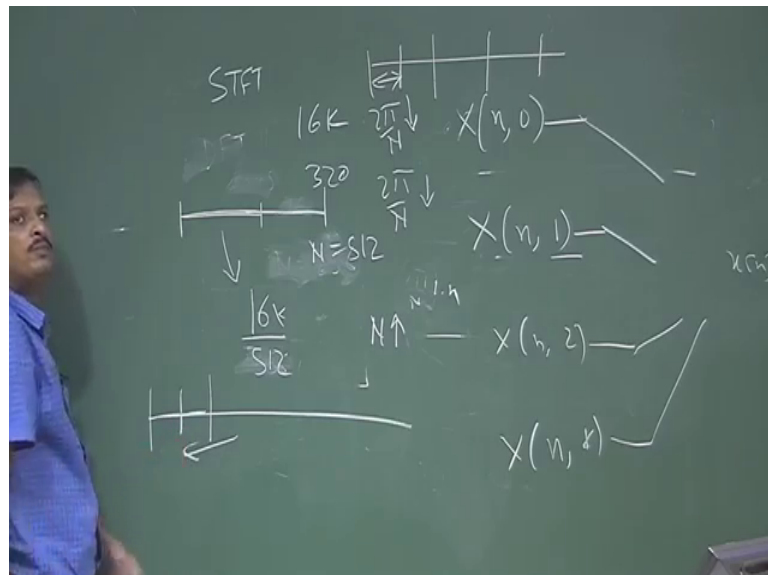 STFT
16K 2π/N ↓ X(n, 0)
320 2π/N ↓
X(n, 1)
N=512
16K/512
N↑ X(n, 2)
X(n, k)